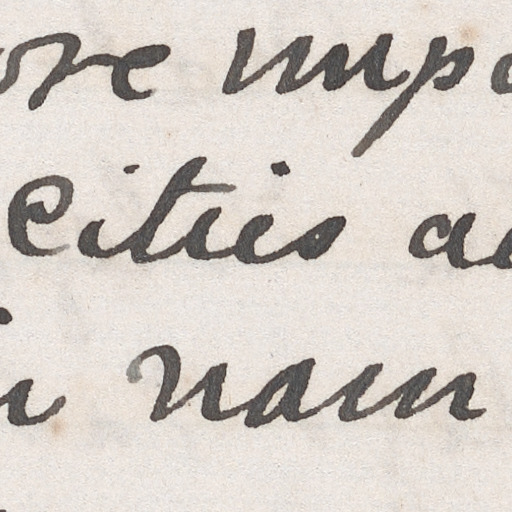 ore impo
Cities a
nam